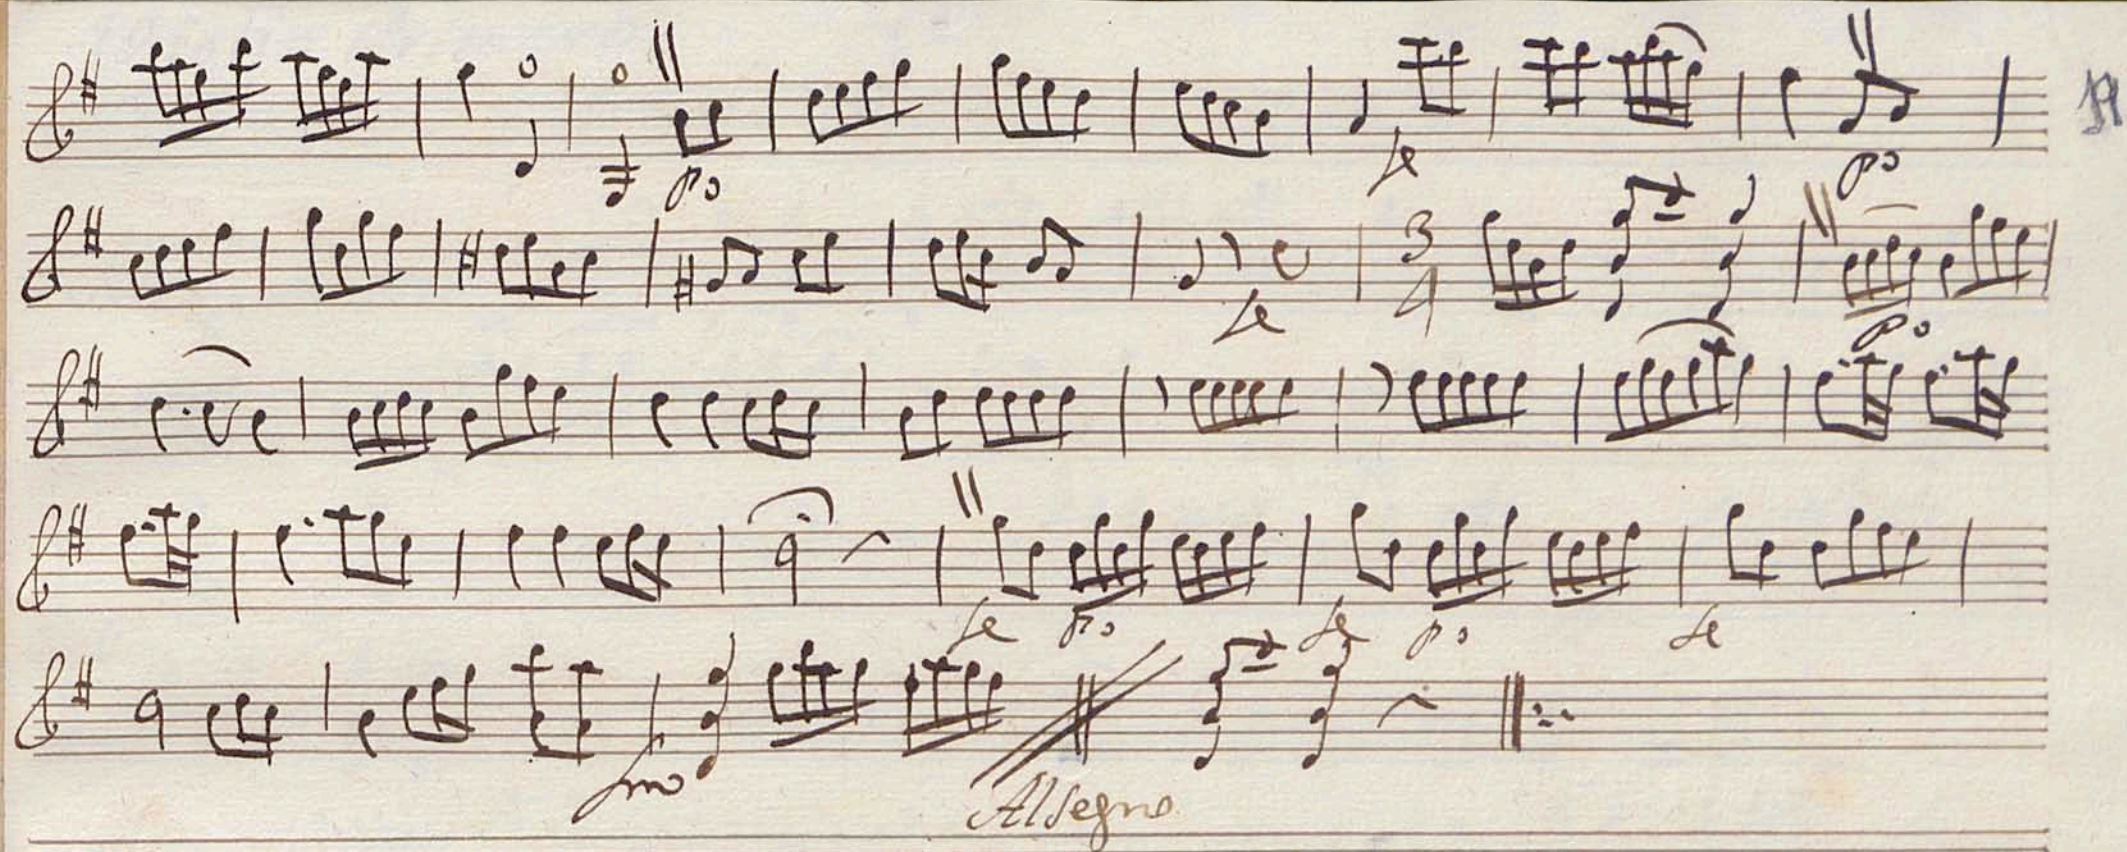 po fe po
3
4
fe po
fe po fe po fe
fmo
Al Segno